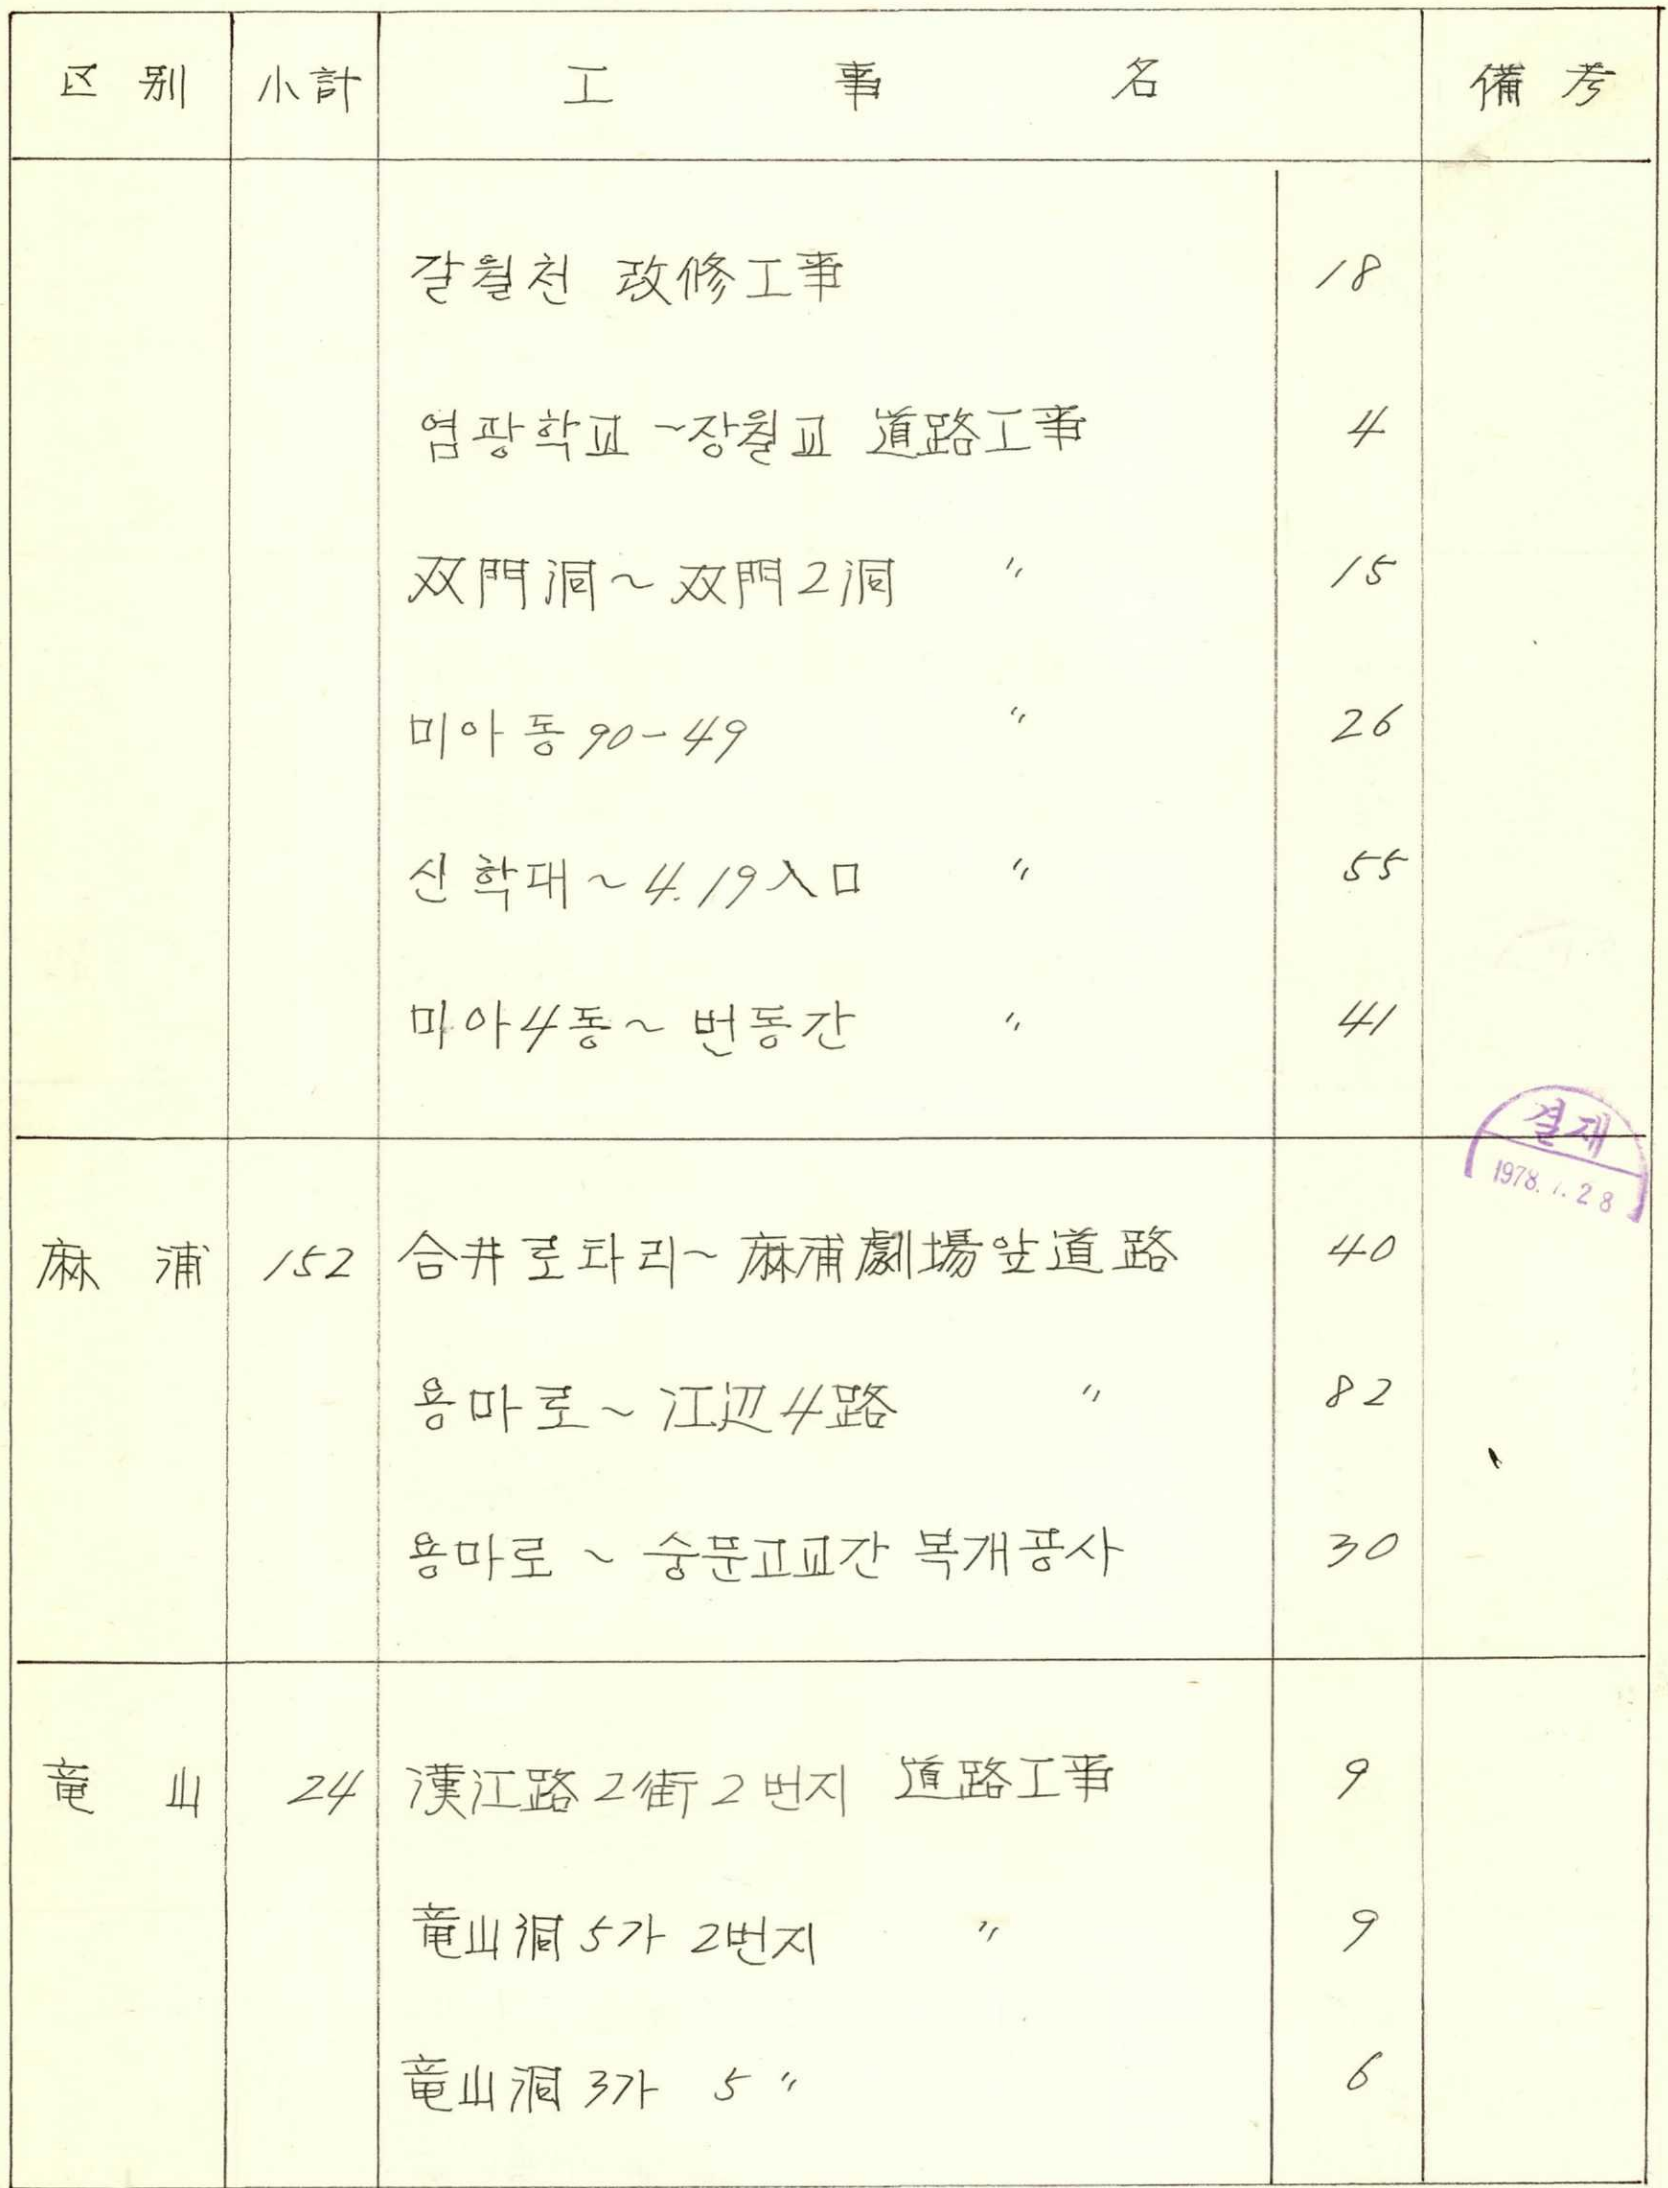 区別 小計 工事名 備考
갈월천 改修工事 18
염광학교~장월교 道路工事 4
双門洞~双門2洞 〃 15
미아동 90-49 〃 26
신학대~4.19入口 〃 55
미아4동~번동간 〃 41
결재
1978. 7. 28
麻浦 152 合井로타리~麻浦劇場앞道路 40
용마로~江辺4路 〃 82
용마로~숭문고교간 복개공사 30
竜山 24 漢江路2街2번지 道路工事 9
竜山洞5가 2번지 〃 9
竜山洞3가 5 〃 6